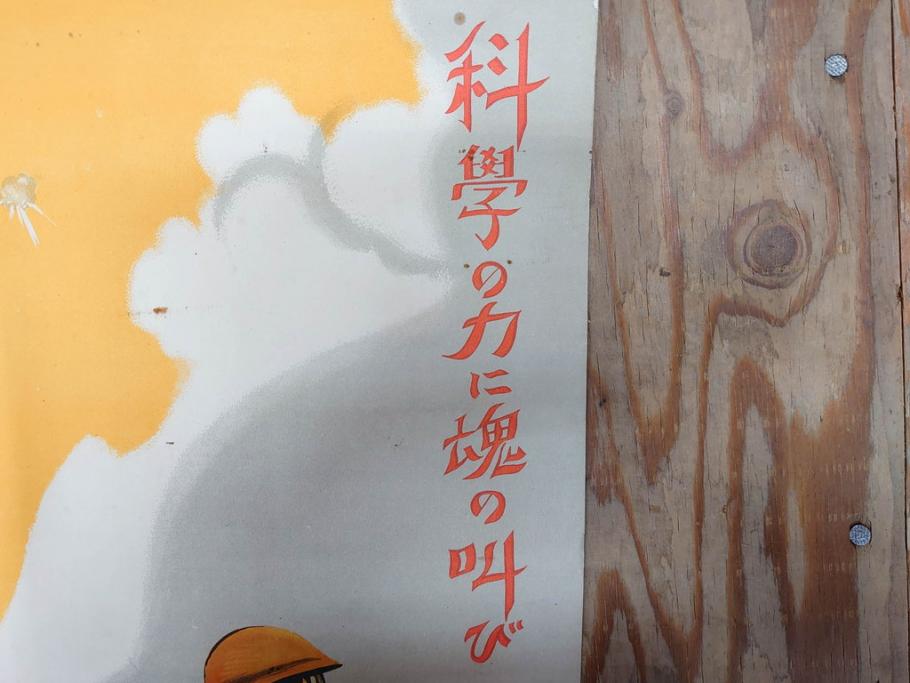 科學の力に魂の叫び